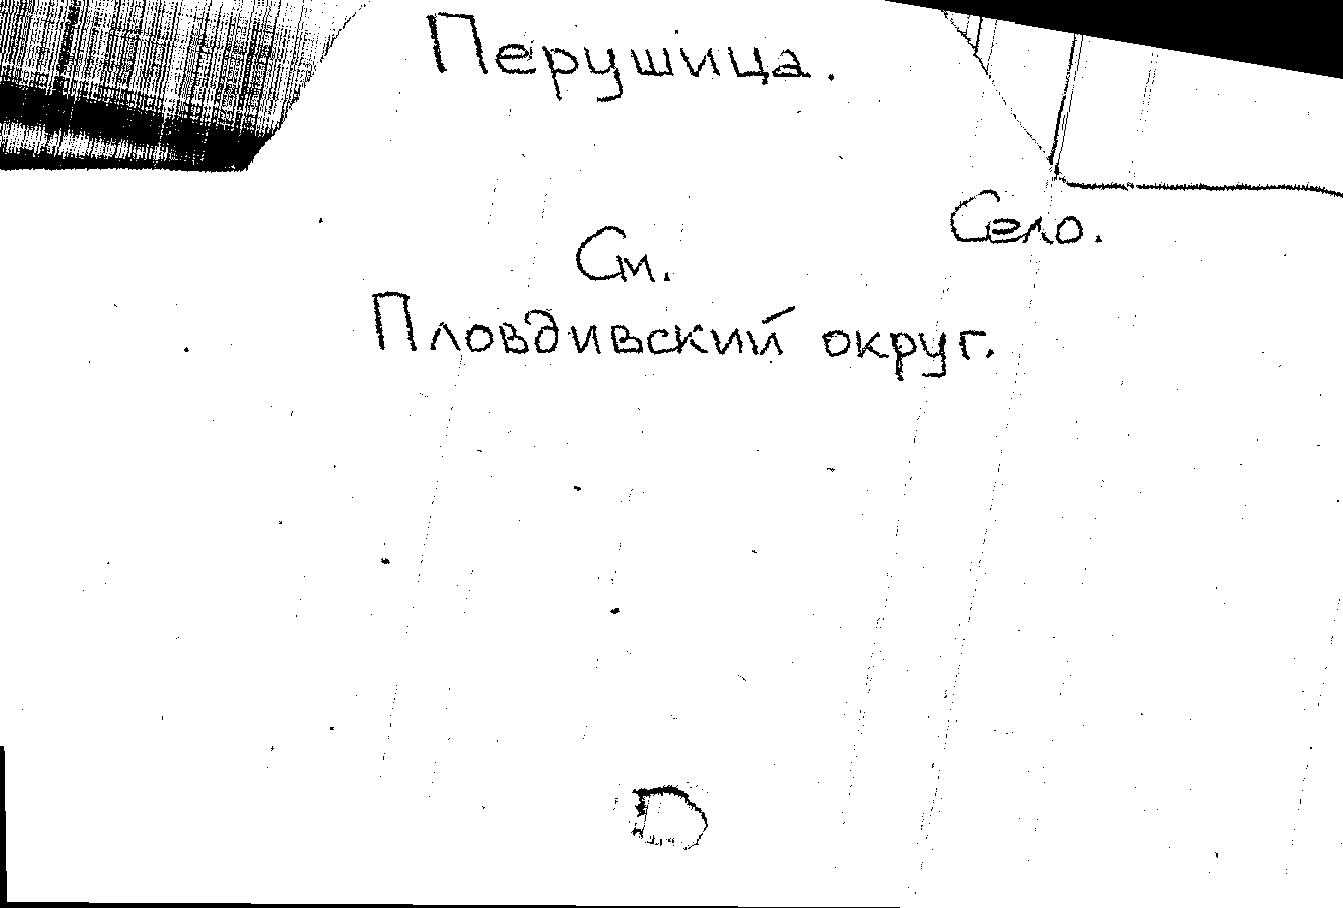 Перушица.
Село.
См.
Пловдивский округ.